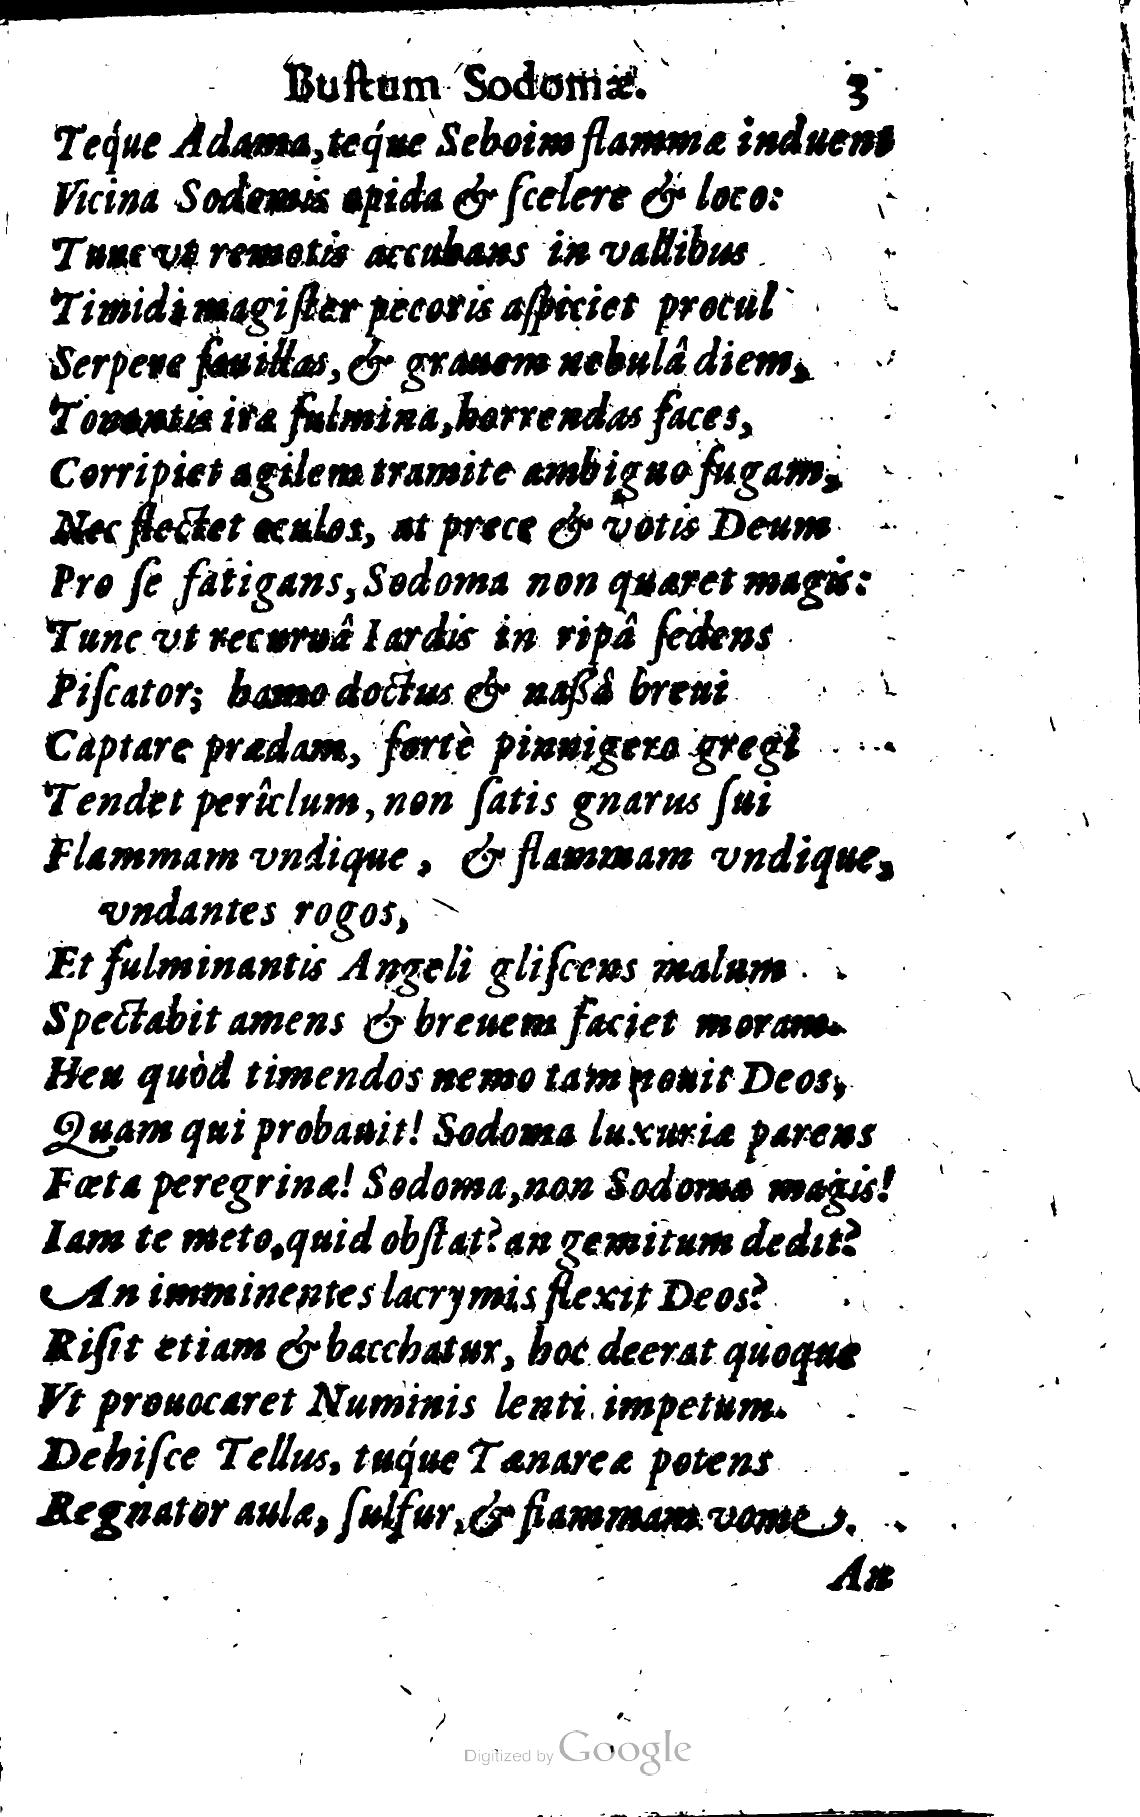 Buſtum Sodomæ. 3
Teq́ue Adama, teq́ue Seboim flammæ induent
Vicina Sodomis opida & ſcelere & loco:
Tunc vt remotis accubans in vallibus
Timidi magiſter pecoris aſpiciet procul
Serpere fauillas, & grauem nebulâ diem,
Tonantis iræ fulmina, horrendas faces,
Corripiet agilem tramite ambiguo fugam,
Nec flectet oculos, at prece & votis Deum
Pro ſe fatigans, Sodoma non quæret magis:
Tunc vt recuruâ Iardis in ripâ ſedens
Piſcator; hamo doctus & naßâ breui
Captare prædam, fortè pinnigero gregi
Tendet perîclum, non ſatis gnarus ſui
Flammam vndique, & flammam vndique,
vndantes rogos,
Et fulminantis Angeli gliſcens malum
Spectabit amens & breuem faciet moram.
Heu quòd timendos nemo tam nouit Deos,
Quam qui probauit! Sodoma luxuriæ parens
Fœta peregrinæ! Sodoma, non Sodoma magis!
Iam te meto, quid obſtat? an gemitum dedit?
An imminentes lacrymis flexit Deos?
Riſit etiam & bacchatur, hoc deerat quoque
Vt prouocaret Numinis lenti impetum.
Dehiſce Tellus, tuq́ue Tænareæ potens
Regnator aulæ, ſulfur, & flammam vome.
An
Digitized by Google